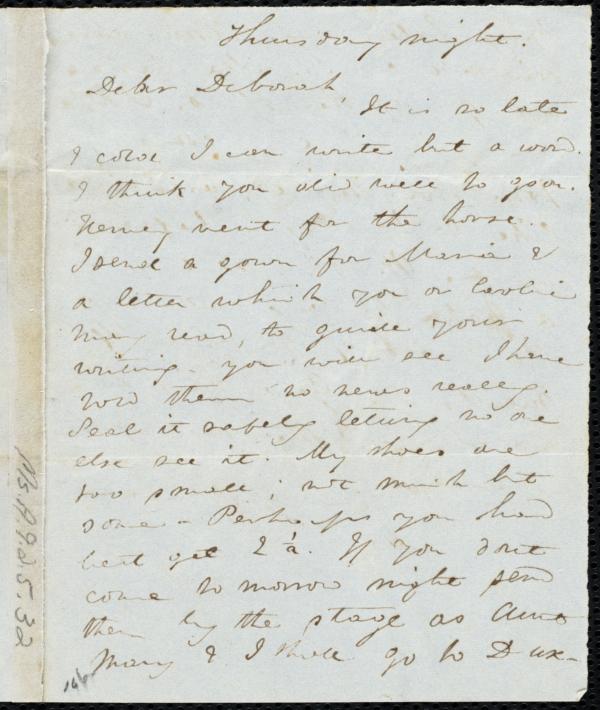 Thursday night.
Dear Deborah,
It is so late
& cold I can write but a word.
I think you did well to go on.
Henry went for the horse.
I send a gown for Maria &
a letter which you or Caroline
may read, to guide your
writing. you will see I have
told them no news really.
Seal it safely letting no one
else see it. My shoes are
too small; not much but
some - Perhaps you had
best get 2 ½. If you dont
come tomorrow night send
them by the stage as Aunt
Mary & I shall go to Dux-
Ms.A.9.2.5.32